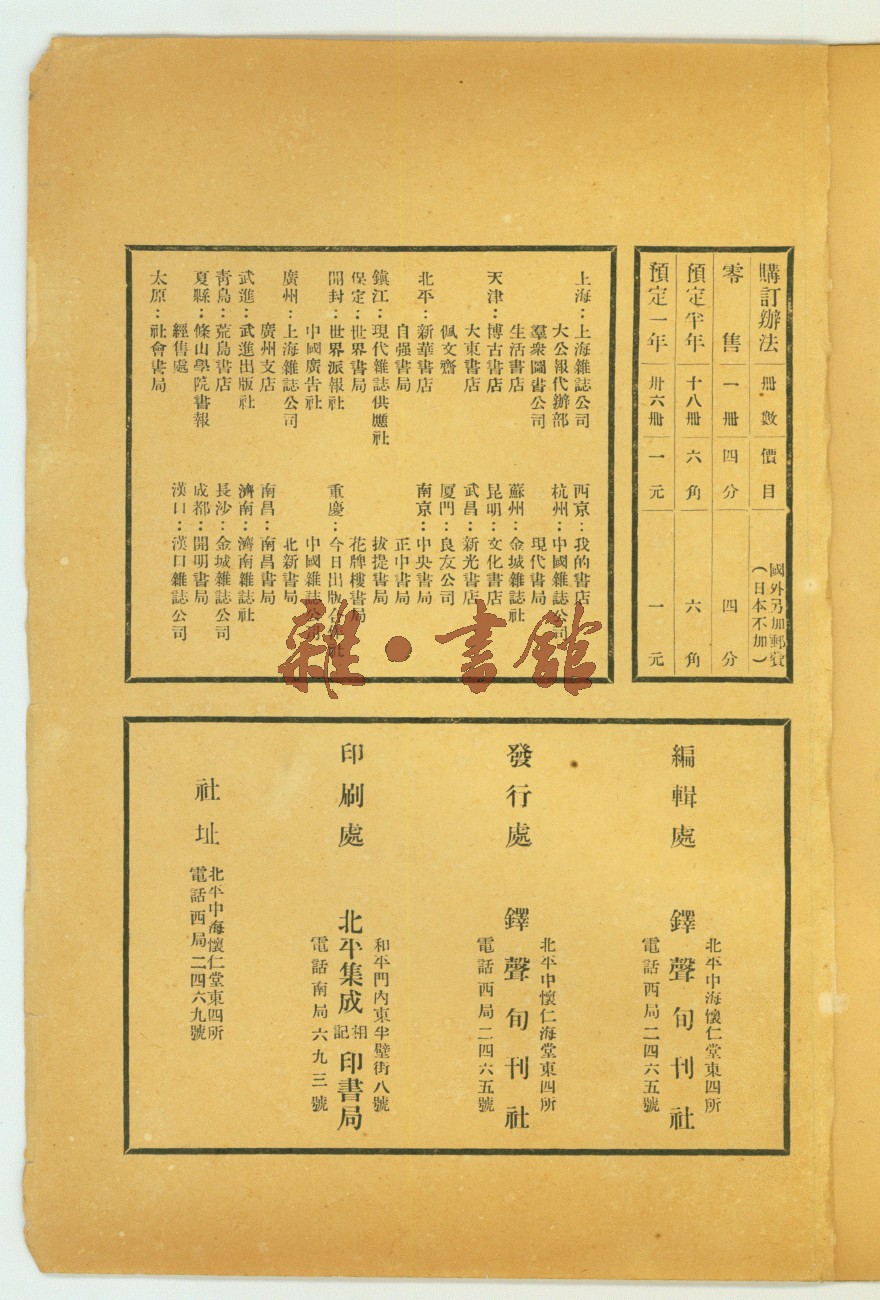 購訂辦法 冊數 價目 國外另加郵費
(日本不加)
零售 一冊 四分 四分
預定半年 十八冊 六角 六角
預定一年 卅六冊 一元 一元
上海：上海雜誌公司
大公報代辦部
羣衆圖書公司
生活書店
天津：博古書店
大東書店
佩文齋
北平：新華書店
自强書局
鎮江：現代雜誌供應社
保定：世界書局
開封：世界派報社
中國廣告社
廣州：上海雜誌公司
廣州支店
武進：武進出版社
青島：荒島書店
夏縣：條山學院書報
經售處
太原：社會書局
西京：我的書店
杭州：中國雜誌公司
現代書局
蘇州：金城雜誌社
昆明：文化書店
武昌：新光書店
厦門：良友公司
南京：中央書局
正中書局
拔提書局
花牌樓書局
重慶：今日出版合作社
中國雜誌公司
北新書局
南昌：南昌書局
濟南：濟南雜誌社
長沙：金城雜誌公司
成都：開明書局
漢口：漢口雜誌公司
雜·書館
北平中海懷仁堂東四所
編輯處 鐸聲旬刊社
電話西局二四六五號
北平中懷仁海堂東四所
發行處 鐸聲旬刊社
電話西局二四六五號
和平門內東半壁街八號
印刷處 北平集成祖記印書局
電話南局六九三號
社址 北平中海懷仁堂東四所
電話西局二四六九號